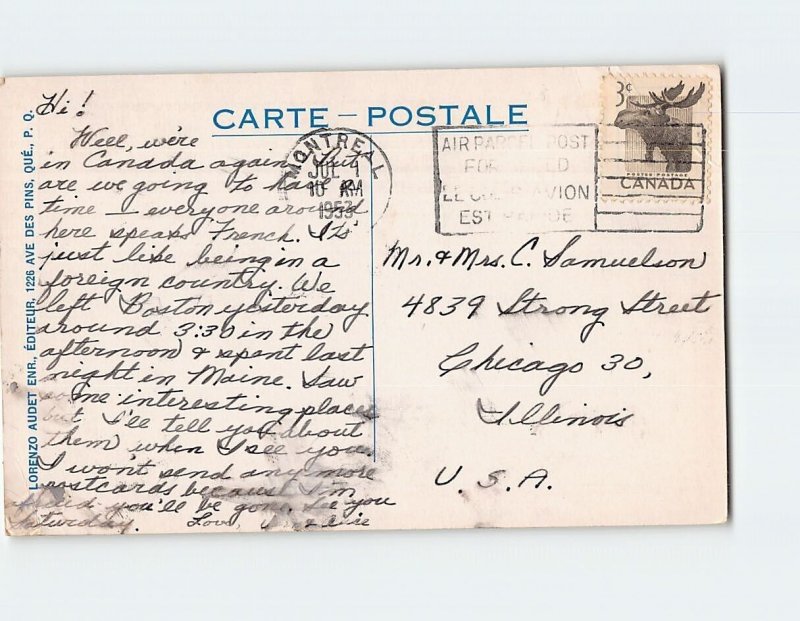 CARTE - POSTALE
LORENZO AUDET ENR., ÉDITEUR, 1226 AVE DES PINS, QUÉ., P. Q.
MONTREAL
JUL 1
10 AM
1953
AIR PARCEL POST
EST
3¢
POSTES POSTAGE
CANADA
Hi!
Well, we're
in Canada again but
are we going to have
time — everyone around
here speaks French. Its
just like being in a
foreign country. We
left Boston yesterday
around 3:30 in the
afternoon & spent last
night in Maine. Saw
some interesting places
but I'll tell you about
them when I see you.
I won't send any more
postcards because I'm
afraid you'll be gone. See you
Saturday. Love,
Mr. & Mrs. C. Samuelson
4839 Strong Street
Chicago 30,
Illinois
U.S.A.